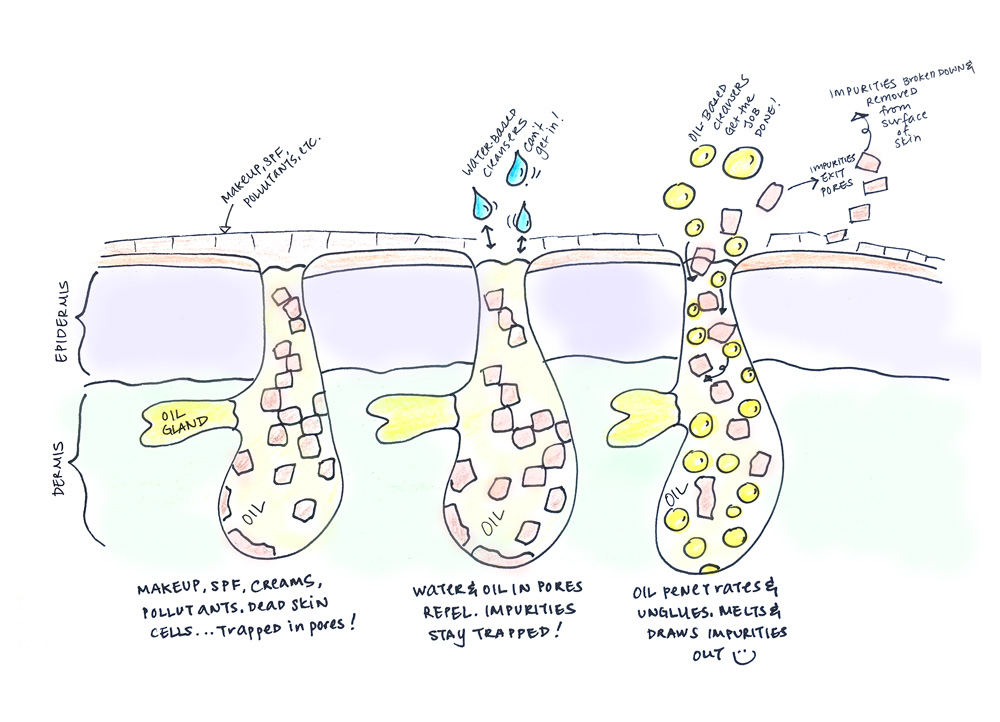 MAKEUP, SPF,
POLLUTANTS, ETC.
WATER-BASED
CLEANSERS
can't
get in!
OIL-BASED
CLEANSERS
Get the
JOB
DONE!
IMPURITIES
EXIT
PORES
IMPURITIES BROKEN DOWN &
REMOVED
from
surface
of
skin
EPIDERMIS
DERMIS
OIL
GLAND
OIL
OIL
OIL
MAKEUP, SPF, CREAMS,
POLLUTANTS. DEAD SKIN
CELLS... Trapped in pores!
WATER & OIL IN PORES
REPEL. IMPURITIES
STAY TRAPPED!
OIL PENETRATES &
UNGLUES. MELTS &
DRAWS IMPURITIES
OUT